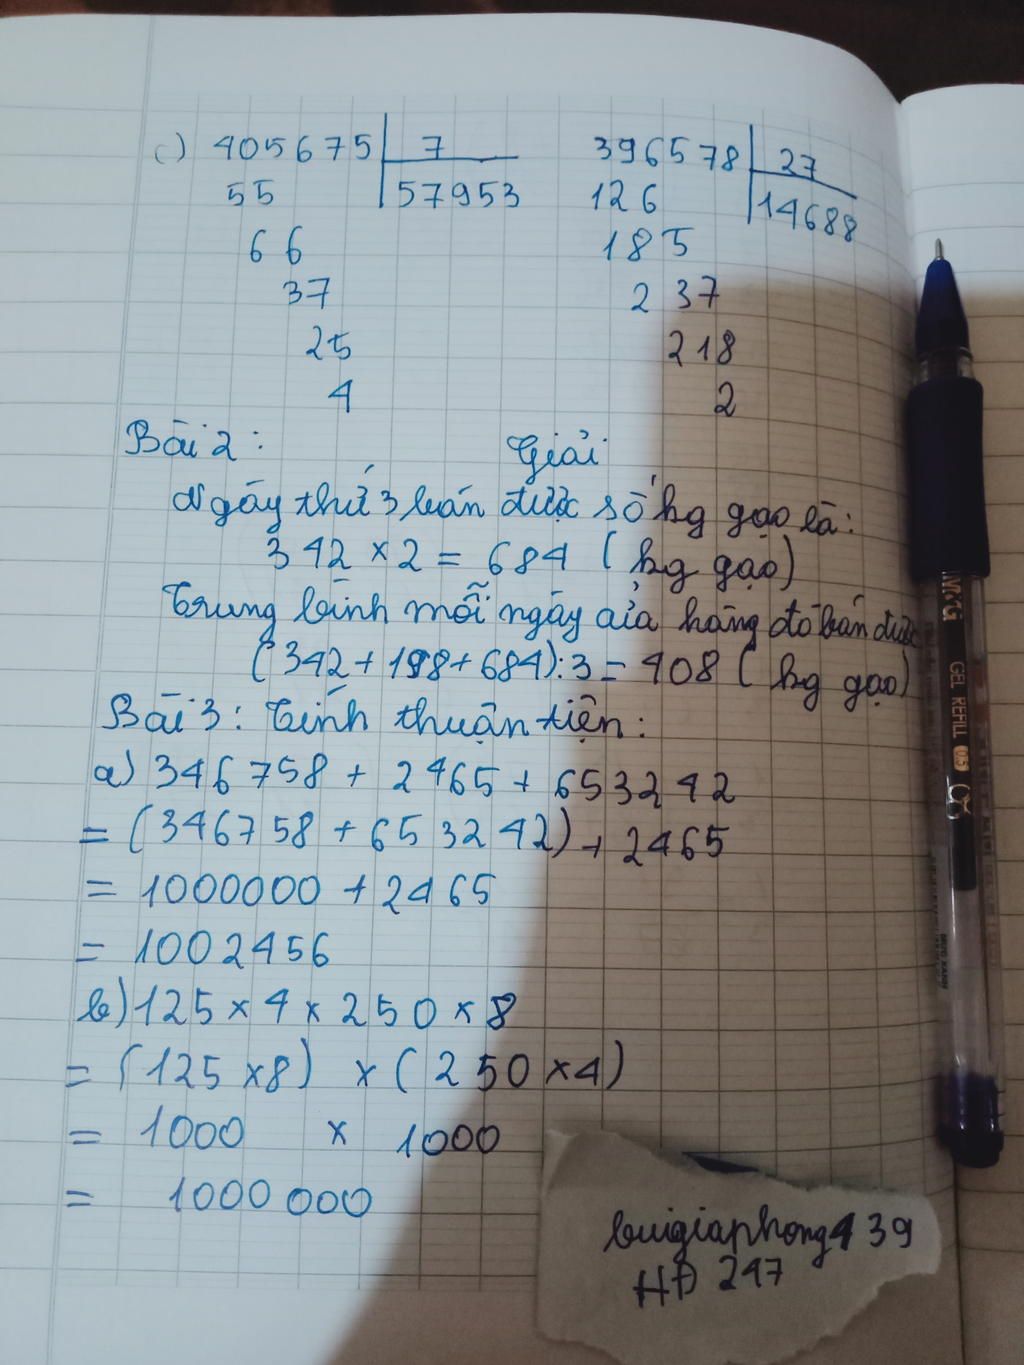 c) 405675 7 396578 27
55 57953 126 14688
66 185
37 237
25 218
4 2
Bài 2: Giải
Ngày thứ 3 bán được số kg gạo là:
342 × 2 = 684 (kg gạo)
Trung bình mỗi ngày cửa hàng đó bán được
(342 + 198 + 684) : 3 = 408 (kg gạo)
Bài 3: Tính thuận tiện:
a) 346758 + 2465 + 653242
= (346758 + 653242) + 2465
= 1000000 + 2465
= 1002456
b) 125 × 4 × 250 × 8
= (125 × 8) × (250 × 4)
= 1000 × 1000
= 1000 000
buigiaphong439
HĐ 247
GEL REFILL 0.5